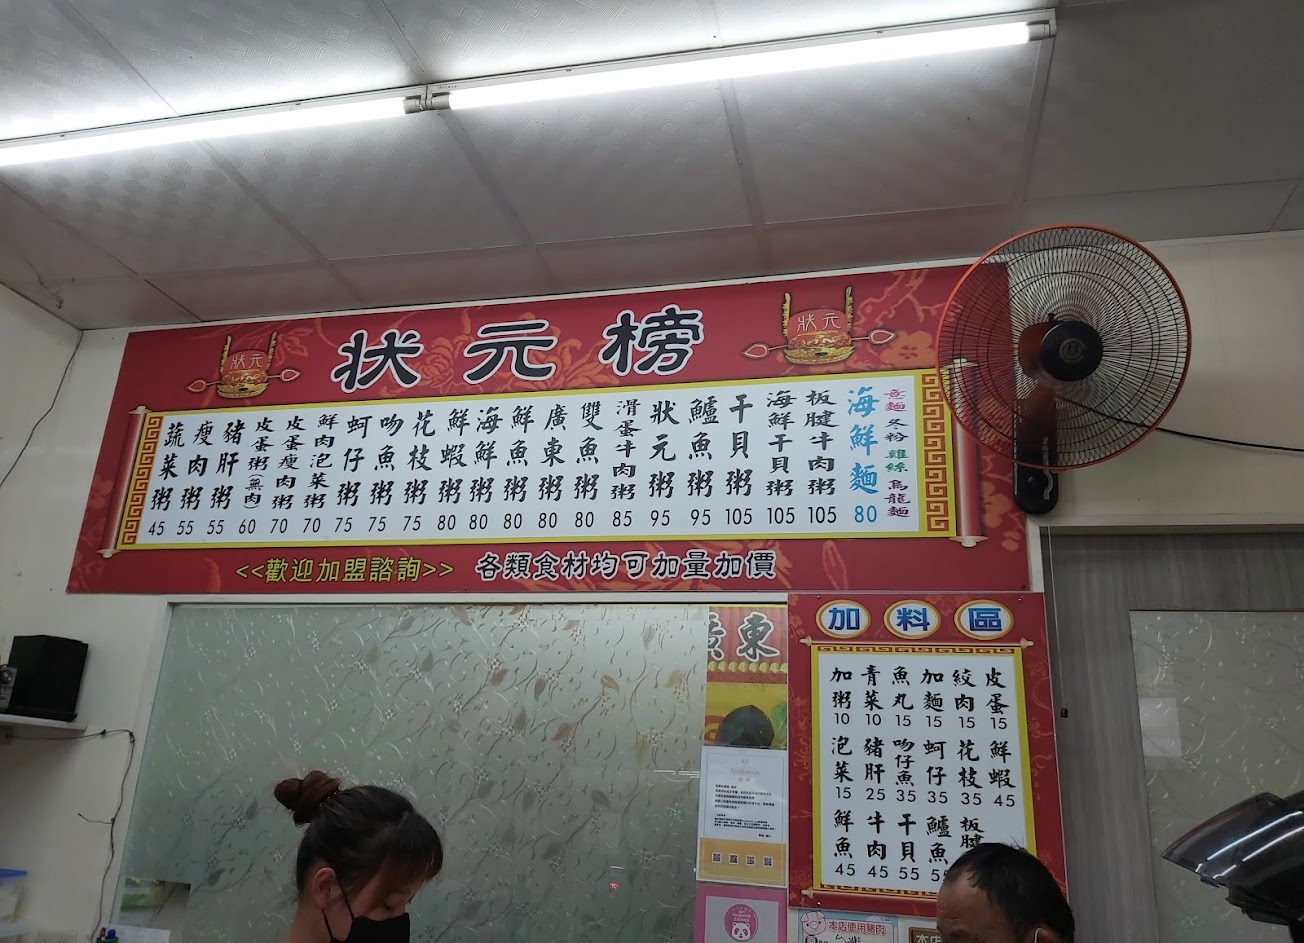 狀元榜
狀元
狀元
蔬菜粥 45
瘦肉粥 55
豬肝粥 55
皮蛋粥(無肉) 60
皮蛋瘦肉粥 70
鮮肉泡菜粥 70
蚵仔粥 75
吻魚粥 75
花枝粥 75
鮮蝦粥 80
海鮮粥 80
鮮魚粥 80
廣東粥 80
雙魚粥 80
滑蛋牛肉粥 85
狀元粥 95
鱸魚粥 95
干貝粥 105
海鮮干貝粥 105
板腱牛肉粥 105
海鮮麵 80
意麵 冬粉 雞絲 烏龍麵
<<歡迎加盟諮詢>> 各類食材均可加量加價
廣東
加料區
加粥 10
青菜 10
魚丸 15
加麵 15
絞肉 15
皮蛋 15
泡菜 15
豬肝 25
吻仔魚 35
蚵仔 35
花枝 35
鮮蝦 45
鮮魚 45
牛肉 45
干貝 55
鱸魚
板腱
本店使用豬肉